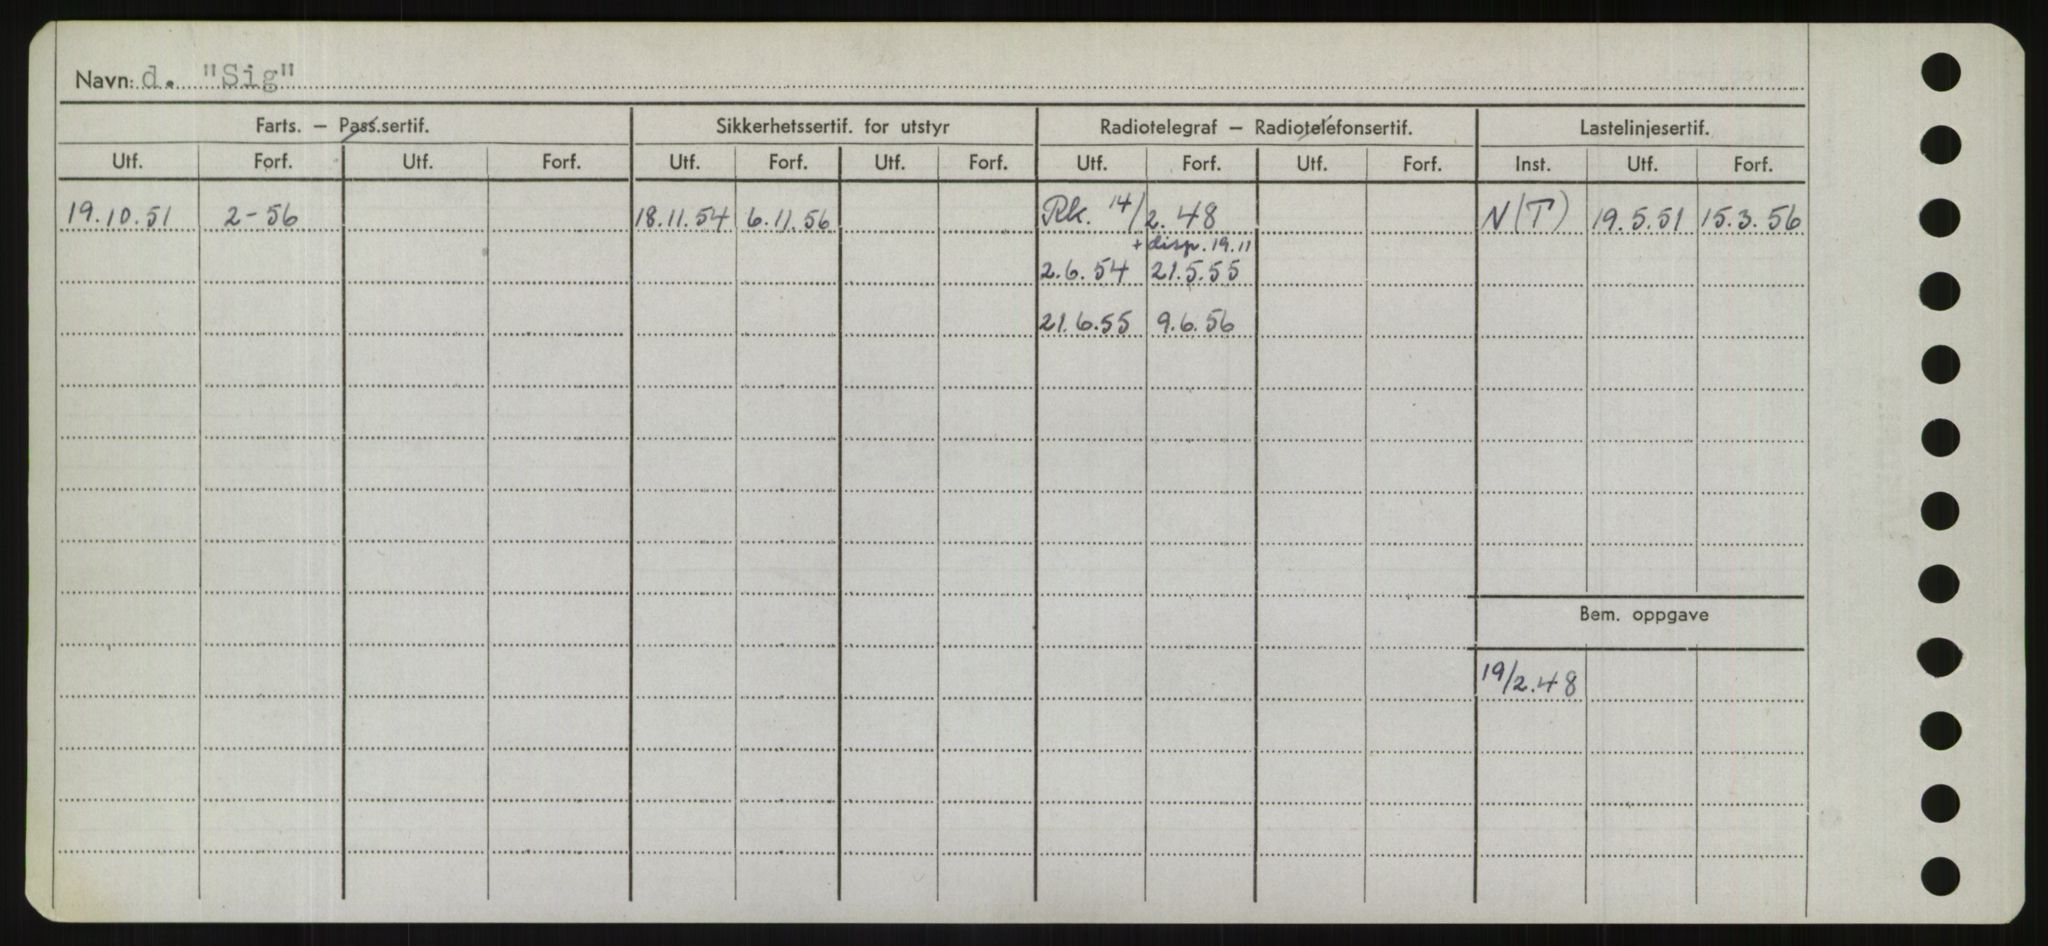 Navn: d. "Sig"
Farts. — Pass.sertif. Sikkerhetssertif. for utstyr Radiotelegraf — Radiotelefonsertif. Lastelinjesertif.
Utf. Forf. Utf. Forf. Utf. Forf. Utf. Forf. Utf. Forf. Utf. Forf. Inst. Utf. Forf.
19.10.51 2-56 18.11.54 6.11.56 Rk. 14/2.48 N(T) 19.5.51 15.3.56
+ disp. 19.11
2.6.54 21.5.55
21.6.55 9.6.56
Bem. oppgave
19/2.48